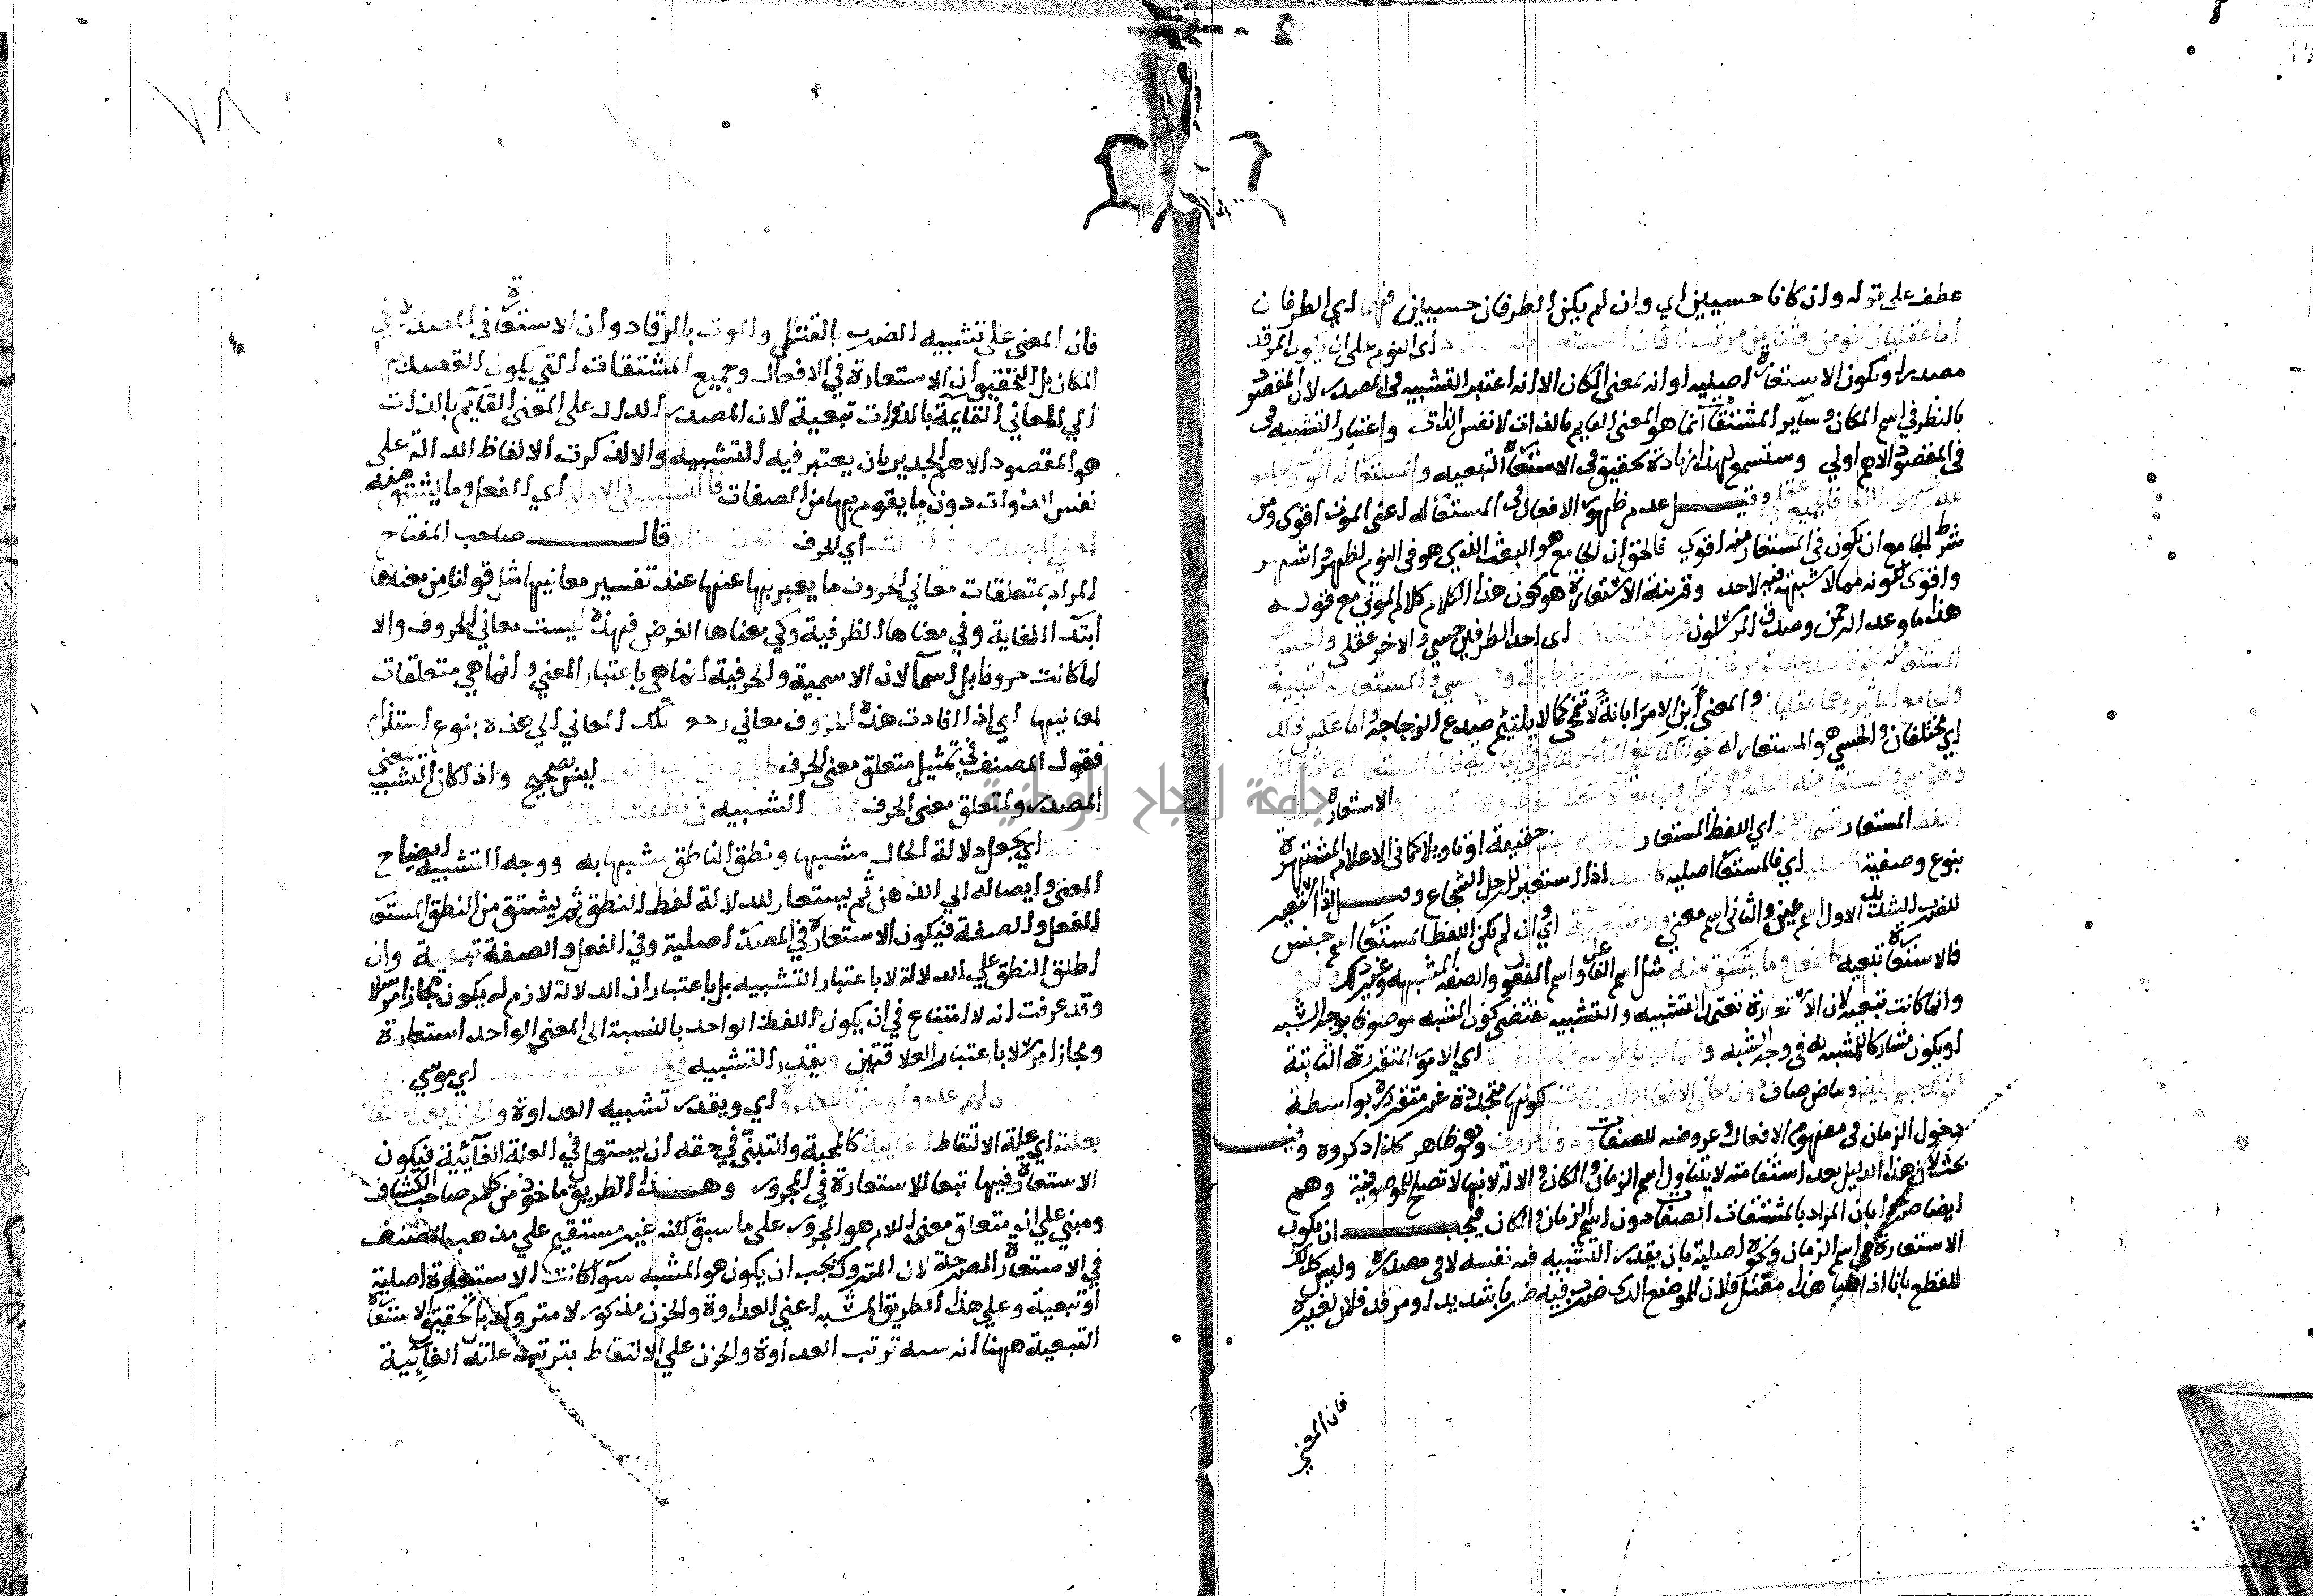 عطف على قوله وان كانا حسيين اي وان لم يكن الطرفان حسيين فهما اي الطرفان
اما عقليان نحو من بعثنا من مرقدنا فان المستعار منه الرقاد اى النوم على ان يكون المرقد
مصدرا وتكون الاستعارة اصلية او انه بمعنى المكان الا انه اعتبر التشبيه في المصدر لان المقصود
بالنظر في اسم المكان وساير المشتقات انما هو المعنى القايم بالذات لا نفس الذات واعتبار التشبيه في
في المقصود الاهم اولي وستسمع لهذا زيادة تحقيق في الاستعارة التبعيه والمستعار له الموت
عقلي وقيل عدم ظهور الافعال في المستعار له اعنى الموت اقوى ومن
شرط الجامع ان يكون في المستعار منه اقوي فالحق ان الجامع هو البعث الذي هو في النوم اظهر واشهر
واقوى لكونه مما لا شبهة فيه لاحد وقرينة الاستعارة هو كون هذا الكلام كلام الموتي مع قوله
هذا ما وعد الرحمن وصدق المرسلون اى احد الطرفين حسي والاخر عقلي
المستعار منه
والمعنى ابن الامر ابانة لا تنمحي كما لا يلتئم صدع الزجاجة واما عكس ذلك
اي مختلفان والحسي هو المستعار له نحو انا لما طغى الماء
والاستعارة
اللفظ المستعار اي اللفظ المستعار حقيقة او تاويلا كما في الاعلام المشتهرة
بنوع وصفية اي فالمستعار اصلية اذا استعير للرجل الشجاع وقتل اذا استعير
للضرب الشديد الاول اسم عين والثاني اسم معني والا فتبعية اي وان لم يكن اللفظ المستعار اسم جنس
فالاستعارة تبعيه كالفعل وما يشتق منه مثل اسم الفاعل واسم المفعول والصفه المشبهه وغير ذلك
وانما كانت تبعيه لان الاستعارة تعتمد التشبيه والتشبيه يقتضي كون المشبه موصوفا بوجه الشبه
او يكون مشاركا للمشبه به في وجه الشبه اي الامور المتقررة الثابتة
كقولك جسم ابيض وبياض صاف دون معاني الافعال كونها متجددة غير متقررة بواسطة
دخول الزمان في مفهوم الافعال وعروضه للصفات ودون الحروف وهو ظاهر كذا ذكروه وفيه
بحث لان هذا الدليل بعد استقامته لا يتناول اسم الزمان والمكان والالة لانها لا تصلح للموصوفية وهم
ايضا صرحوا بان المراد بالمشتقات الصفات دون اسم الزمان والمكان فيجب ان يكون
الاستعارة في اسم الزمان ونحوه اصلية بان يقدر التشبيه فيه نفسه لا في مصدره وليس كذلك
للقطع بانا اذا قلنا هذا مقتل فلان للموضع الذي ضرب فيه ضربا شديدا ومرقد فلان لقبره
فان المعني
فان المعنى على تشبيه الضرب بالقتل والموت بالرقاد وان الاستعارة في المصدر لا في
المكان بل التحقيق ان الاستعارة في الافعال وجميع المشتقات التي يكون القصد بها
الي المعاني القايمة بالذوات تبعية لان المصدر الدال على المعنى القايم بالذات
هو المقصود الاهم الجدير بان يعتبر فيه التشبيه والا لذكرت الالفاظ الدالة على
نفس الذوات دون ما يقوم بها من الصفات فالتشبيه في الاولين اي الفعل وما يشتق منه
لمعني المصدر اي الحرف لمتعلق معناه قال صاحب المفتاح
المراد بمتعلقات معاني الحروف ما يعبر بها عنها عند تفسير معانيها مثل قولنا من معناها
ابتدآ الغاية وفي معناها الظرفية وكي معناها الغرض فهذه ليست معاني الحروف والا
لما كانت حروفا بل اسمآ لان الاسمية والحرفية انما هي باعتبار المعني وانما هي متعلقات
لمعانيها اي اذا افادت هذه الحروف معاني رجع تلك المعاني الي هذه بنوع استلزام
فقول المصنف في تمثيل متعلق معنى الحرف ليس بصحيح واذا كان التشبيه لمعني
المصدر ولمتعلق معنى الحرف التشبيه في نطقت الحال
اي يجعل دلالة الحال مشبها ونطق الناطق مشبها به ووجه التشبيه ايضاح
المعنى وايصاله الي الذهن ثم يستعار للدلالة لفظ النطق ثم يشتق من النطق المستعار
الفعل والصفة فيكون الاستعارة في المصدر اصلية وفي الفعل والصفة تبعية وان
اطلق النطق علي الدلالة لا باعتبار التشبيه بل باعتبار ان الدلالة لازم له يكون مجازا مرسلا
وقد عرفت انه لا امتناع في ان يكون اللفظ الواحد بالنسبة الى المعني الواحد استعارة
ومجازا مرسلا باعتبار العلاقتين ويقدر التشبيه في اي موسي
ليكون لهم عدوا وحزنا للعداوة اي ويقدر تشبيه العداوة والحزن بعد الالتقاط
بعلته اي علة الالتقاط الغايية كالمحبة والتبني في حقه ان يستعمل في العلة الغآئية فيكون
الاستعارة فيها تبعا للاستعارة في المجرور وهذا الطريق ماخوذ من كلام صاحب الكشاف
ومبني علي ان متعلق معنى اللام هو المجرور على ما سبق لكنه غير مستقيم علي مذهب المصنف
في الاستعارة المصرحة لان المتروك يجب ان يكون هو المشبه سوآ كانت الاستعارة اصلية
او تبعية وعلي هذا الطريق المشبه اعني العداوة والحزن مذكور لا متروك بل تحقيق الاستعارة
التبعية ههنا انه شبه ترتب العداوة والحزن علي الالتقاط بترتب علته الغآئية
جامعة النجاح الوطنية